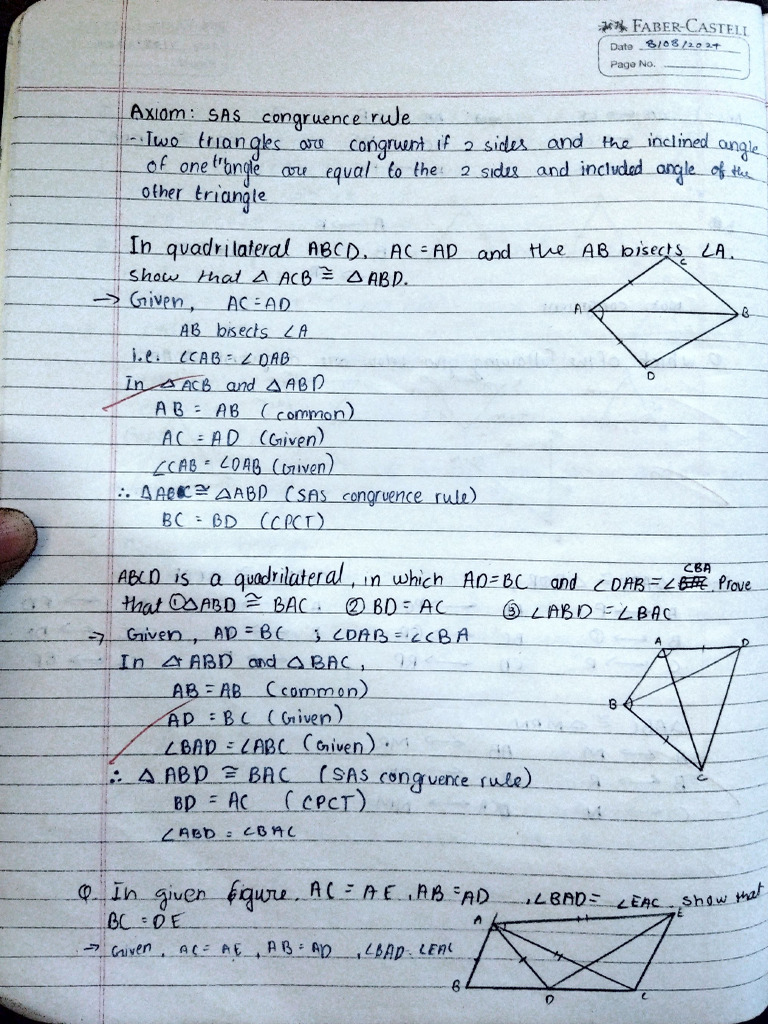 FABER-CASTELL
Date 8/08/2024
Page No.
Axiom: SAS congruence rule
- Two triangles are congruent if 2 sides and the inclined angle
of one triangle are equal to the 2 sides and included angle of the
other triangle
In quadrilateral ABCD, AC = AD and the AB bisects ∠A.
Show that △ ACB ≅ △ ABD.
→ Given, AC = AD
AB bisects ∠A
i.e. ∠CAB = ∠DAB
In △ ACB and △ABD
AB = AB (common)
AC = AD (Given)
∠CAB = ∠DAB (Given)
∴ △ABC ≅ △ABD (SAS congruence rule)
BC = BD (CPCT)
A
C
B
D
ABCD is a quadrilateral, in which AD = BC and ∠DAB = ∠CBA. Prove
that ① △ABD ≅ BAC. ② BD = AC ③ ∠ABD = ∠BAC
→ Given, AD = BC ; ∠DAB = ∠CBA
In △ ABD and △ BAC,
AB = AB (common)
AD = BC (Given)
∠BAD = ∠ABC (Given).
∴ △ ABD ≅ BAC (SAS congruence rule)
BD = AC (CPCT)
∠ABD = ∠BAC
A
D
B
C
Q. In given figure, AC = AE, AB = AD, ∠BAD = ∠EAC. Show that
BC = DE
→ Given, AC = AE, AB = AD, ∠BAD = ∠EAC
A
E
B
D
C